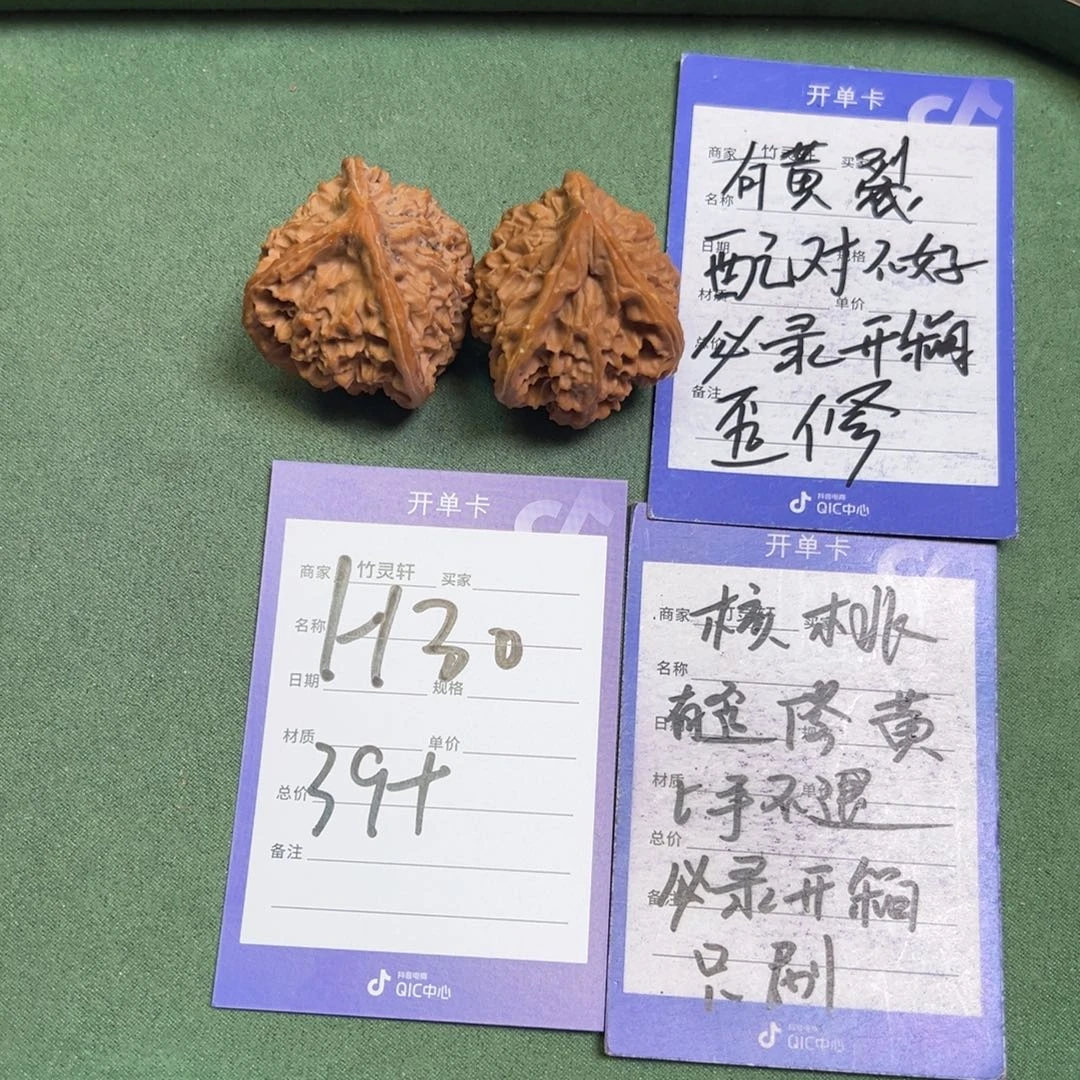 开单卡
商家 竹灵轩 买家
有黄裂
名称
日期 规格
配对不好
材质 单价
总价
必录开箱
备注
歪修
抖音电商
QIC中心
开单卡
商家 竹灵轩 买家
名称
H30
日期 规格
材质 单价
总价
39+
备注
抖音电商
QIC中心
开单卡
商家 竹灵轩 买家
核桃
名称
有歪修黄
材质 单价
上手不退
总价
备注
必录开箱
只刷
抖音电商
QIC中心